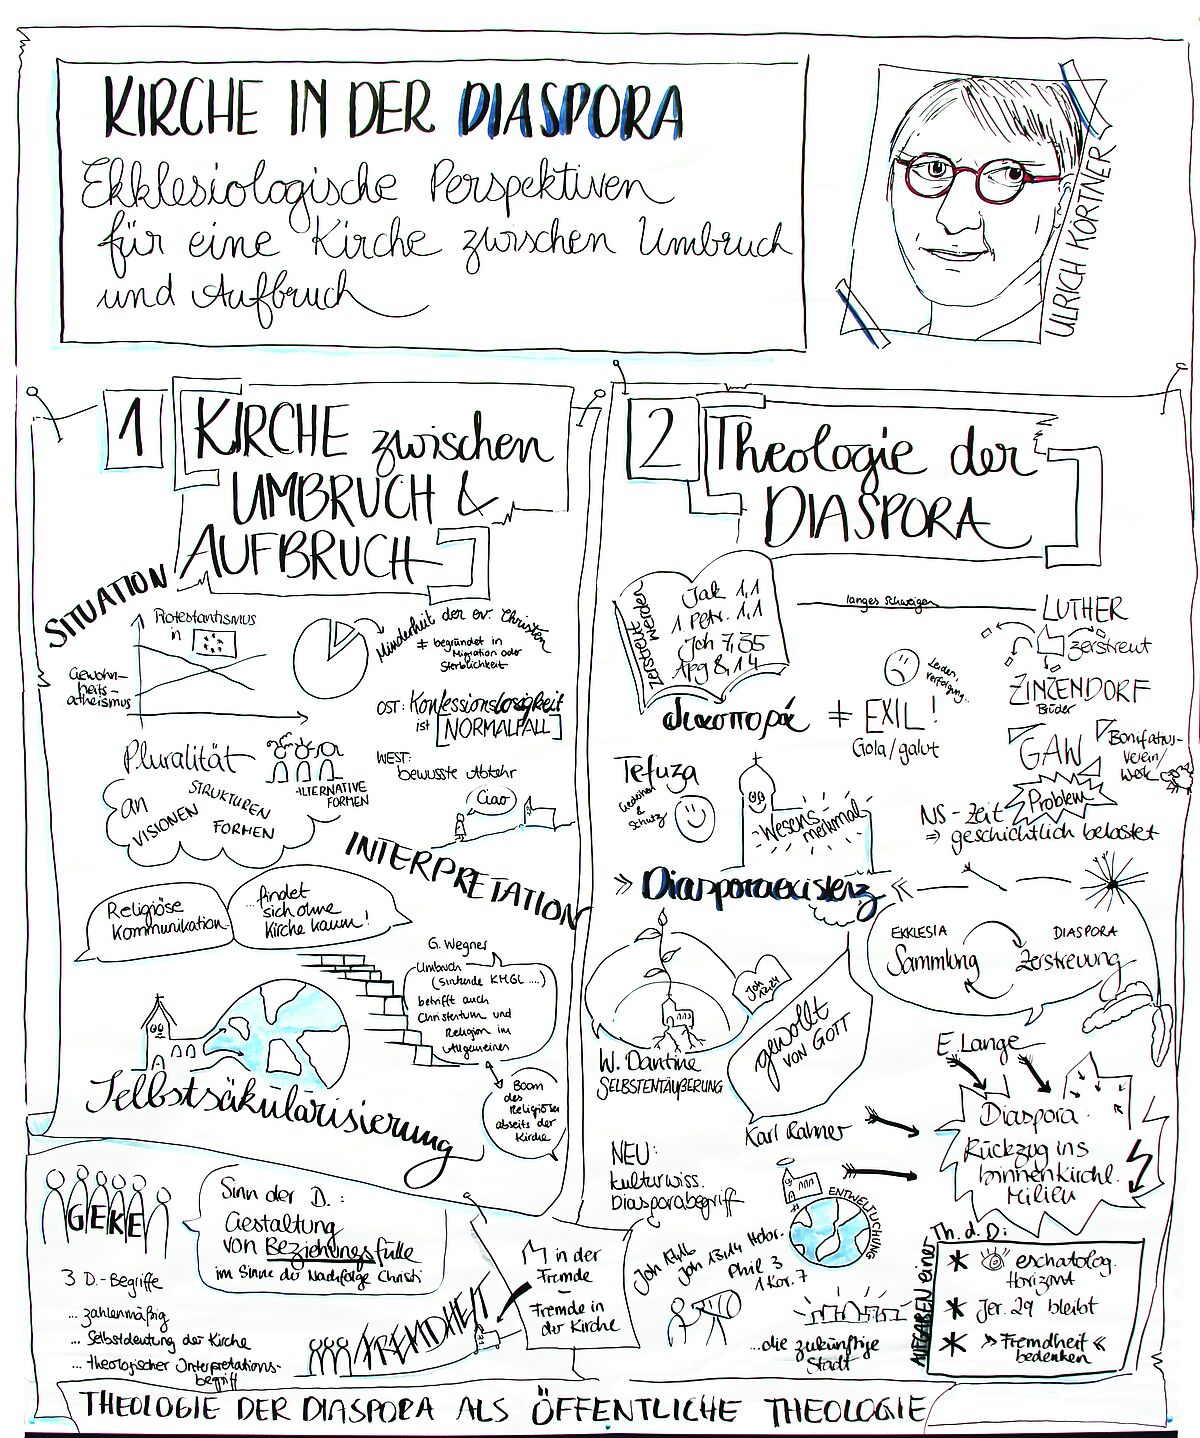 KIRCHE IN DER DIASPORA
Ekklesiologische Perspektiven
für eine Kirche zwischen Umbruch
und Aufbruch
ULRICH KÖRTNER
1
KIRCHE zwischen
UMBRUCH &
AUFBRUCH
SITUATION
Protestantismus
in
Gewohn-
heits-
atheismus
Minderheit der ev. Christen
≠ begründet in
Migration oder
Sterblichkeit
OST: Konfessionslosigkeit
ist NORMALFALL
Pluralität
an
VISIONEN
STRUKTUREN
FORMEN
ALTERNATIVE
FORMEN
WEST:
bewusste Abkehr
Ciao
INTERPRETATION
Religiöse
Kommunikation
...findet
sich ohne
Kirche kaum!
G. Wegner
Umbruch
(sinkende KMGL ....)
betrifft auch
Christentum und
Religion im
Allgemeinen
Boom
des
Religiösen
abseits der
Kirche
Selbstsäkularisierung
GEKE
Sinn der D.:
Gestaltung
von Beziehungsfülle
im Sinne der Nachfolge Christi
3 D.-Begriffe
... zahlenmäßig
... Selbstdeutung der Kirche
... theologischer Interpretations-
begriff
FREMDHEIT
in der
Fremde
–
Fremde in
der Kirche
2
Theologie der
DIASPORA
Zerstreut
werden
Jak 1,1
1 Petr. 1,1
Joh 7,35
Apg 8,1.4
langes Schweigen
LUTHER
zerstreut
Leiden,
Verfolgung...
ZINZENDORF
Brüder
διασπορά ≠ EXIL!
Gola/galut
GAW
Bonifatius-
verein/
werk
Tefuza
Gedeihen
&
Schutz
Wesens
merkmal
Problem
NS - Zeit
⇒ geschichtlich belastet
» Diasporaexistenz «
EKKLESIA
Sammlung
DIASPORA
Zerstreuung
Joh
12,24
W. Dantine
SELBSTENTÄUßERUNG
gewollt
VON GOTT
Karl Rahner
E. Lange
Diaspora
Rückzug ins
binnenkirchl.
Milieu
NEU:
kulturwiss.
Diasporabegriff
ENTWELTLICHUNG
Joh 13,14 Hebr.
Phil 3
1 Kor. 7
...die zukünftige
Stadt
AUFGABEN einer
Th. d. D:
* eschatolog.
Horizont
* Jer. 29 bleibt
* »Fremdheit«
bedenken
THEOLOGIE DER DIASPORA ALS ÖFFENTLICHE THEOLOGIE